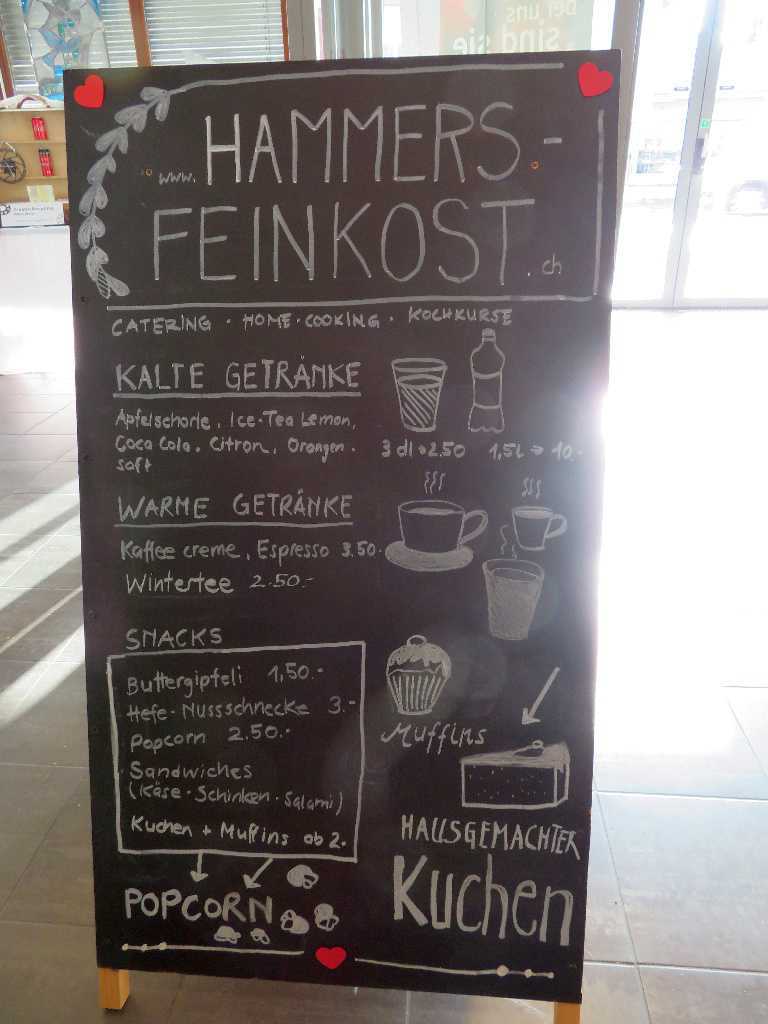 www. HAMMERS-
FEINKOST.ch
CATERING · HOME-COOKING · KOCHKURSE
KALTE GETRÄNKE
Apfelschorle, Ice-Tea Lemon,
Coca Cola, Citron, Orangen-
saft
3 dl → 2.50 1,5L → 10.-
WARME GETRÄNKE
Kaffee creme, Espresso 3.50.-
Wintertee 2.50.-
SNACKS
Buttergipfeli 1,50.-
Hefe-Nussschnecke 3.-
Popcorn 2.50.-
Sandwiches
(Käse-Schinken-Salami)
Kuchen + Muffins ab 2.
POPCORN
Muffins
HAUSGEMACHTER
Kuchen